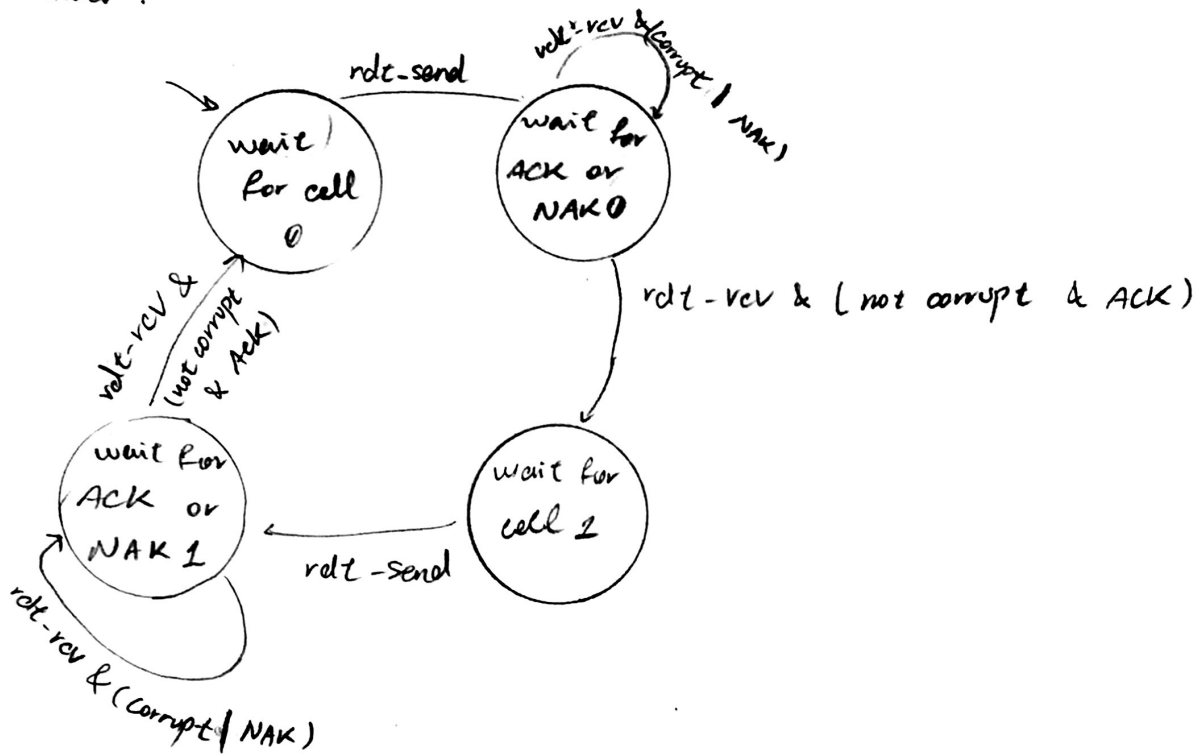 rdt-send
rdt-rcv & (corrupt | NAK)
wait
for call
0
wait for
ACK or
NAK 0
rdt-rcv & (not corrupt & ACK)
rdt-rcv &
(not corrupt
& ACK)
wait for
ACK or
NAK 1
wait for
call 1
rdt-send
rdt-rcv & (corrupt | NAK)